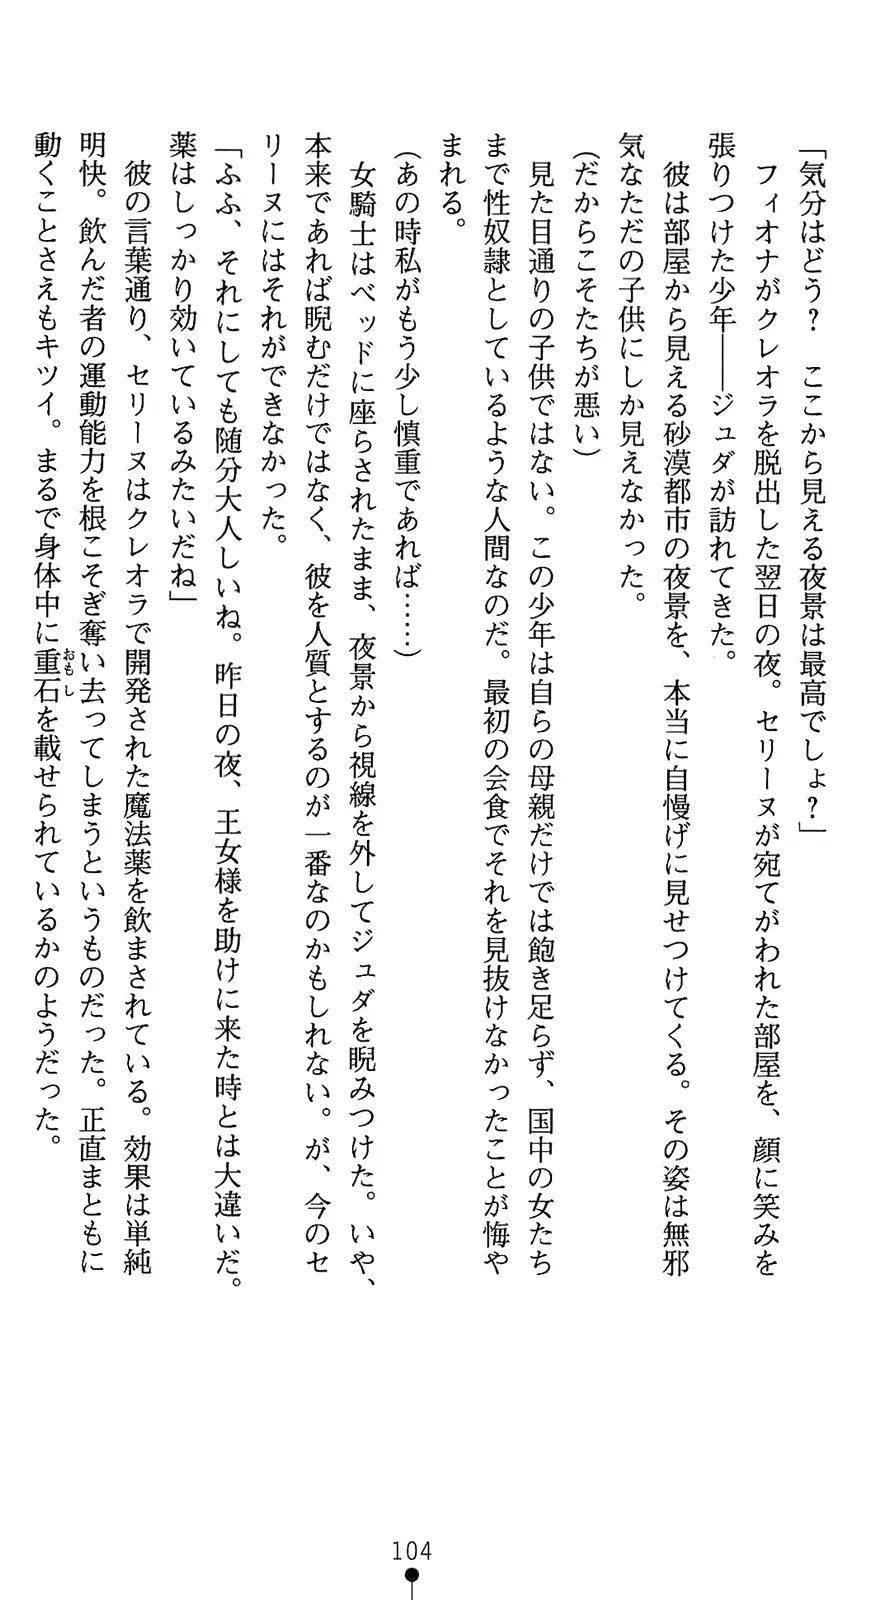 「気分はどう？　ここから見える夜景は最高でしょ？」
　フィオナがクレオラを脱出した翌日の夜。セリーヌが宛てがわれた部屋を、顔に笑みを
張りつけた少年――ジュダが訪れてきた。
　彼は部屋から見える砂漠都市の夜景を、本当に自慢げに見せつけてくる。その姿は無邪
気なただの子供にしか見えなかった。
（だからこそたちが悪い）
　見た目通りの子供ではない。この少年は自らの母親だけでは飽き足らず、国中の女たち
まで性奴隷としているような人間なのだ。最初の会食でそれを見抜けなかったことが悔や
まれる。
（あの時私がもう少し慎重であれば……）
　女騎士はベッドに座らされたまま、夜景から視線を外してジュダを睨みつけた。いや、
本来であれば睨むだけではなく、彼を人質とするのが一番なのかもしれない。が、今のセ
リーヌにはそれができなかった。
「ふふ、それにしても随分大人しいね。昨日の夜、王女様を助けに来た時とは大違いだ。
薬はしっかり効いているみたいだね」
　彼の言葉通り、セリーヌはクレオラで開発された魔法薬を飲まされている。効果は単純
明快。飲んだ者の運動能力を根こそぎ奪い去ってしまうというものだった。正直まともに
動くことさえもキツイ。まるで身体中に重石を載せられているかのようだった。
おもし
104